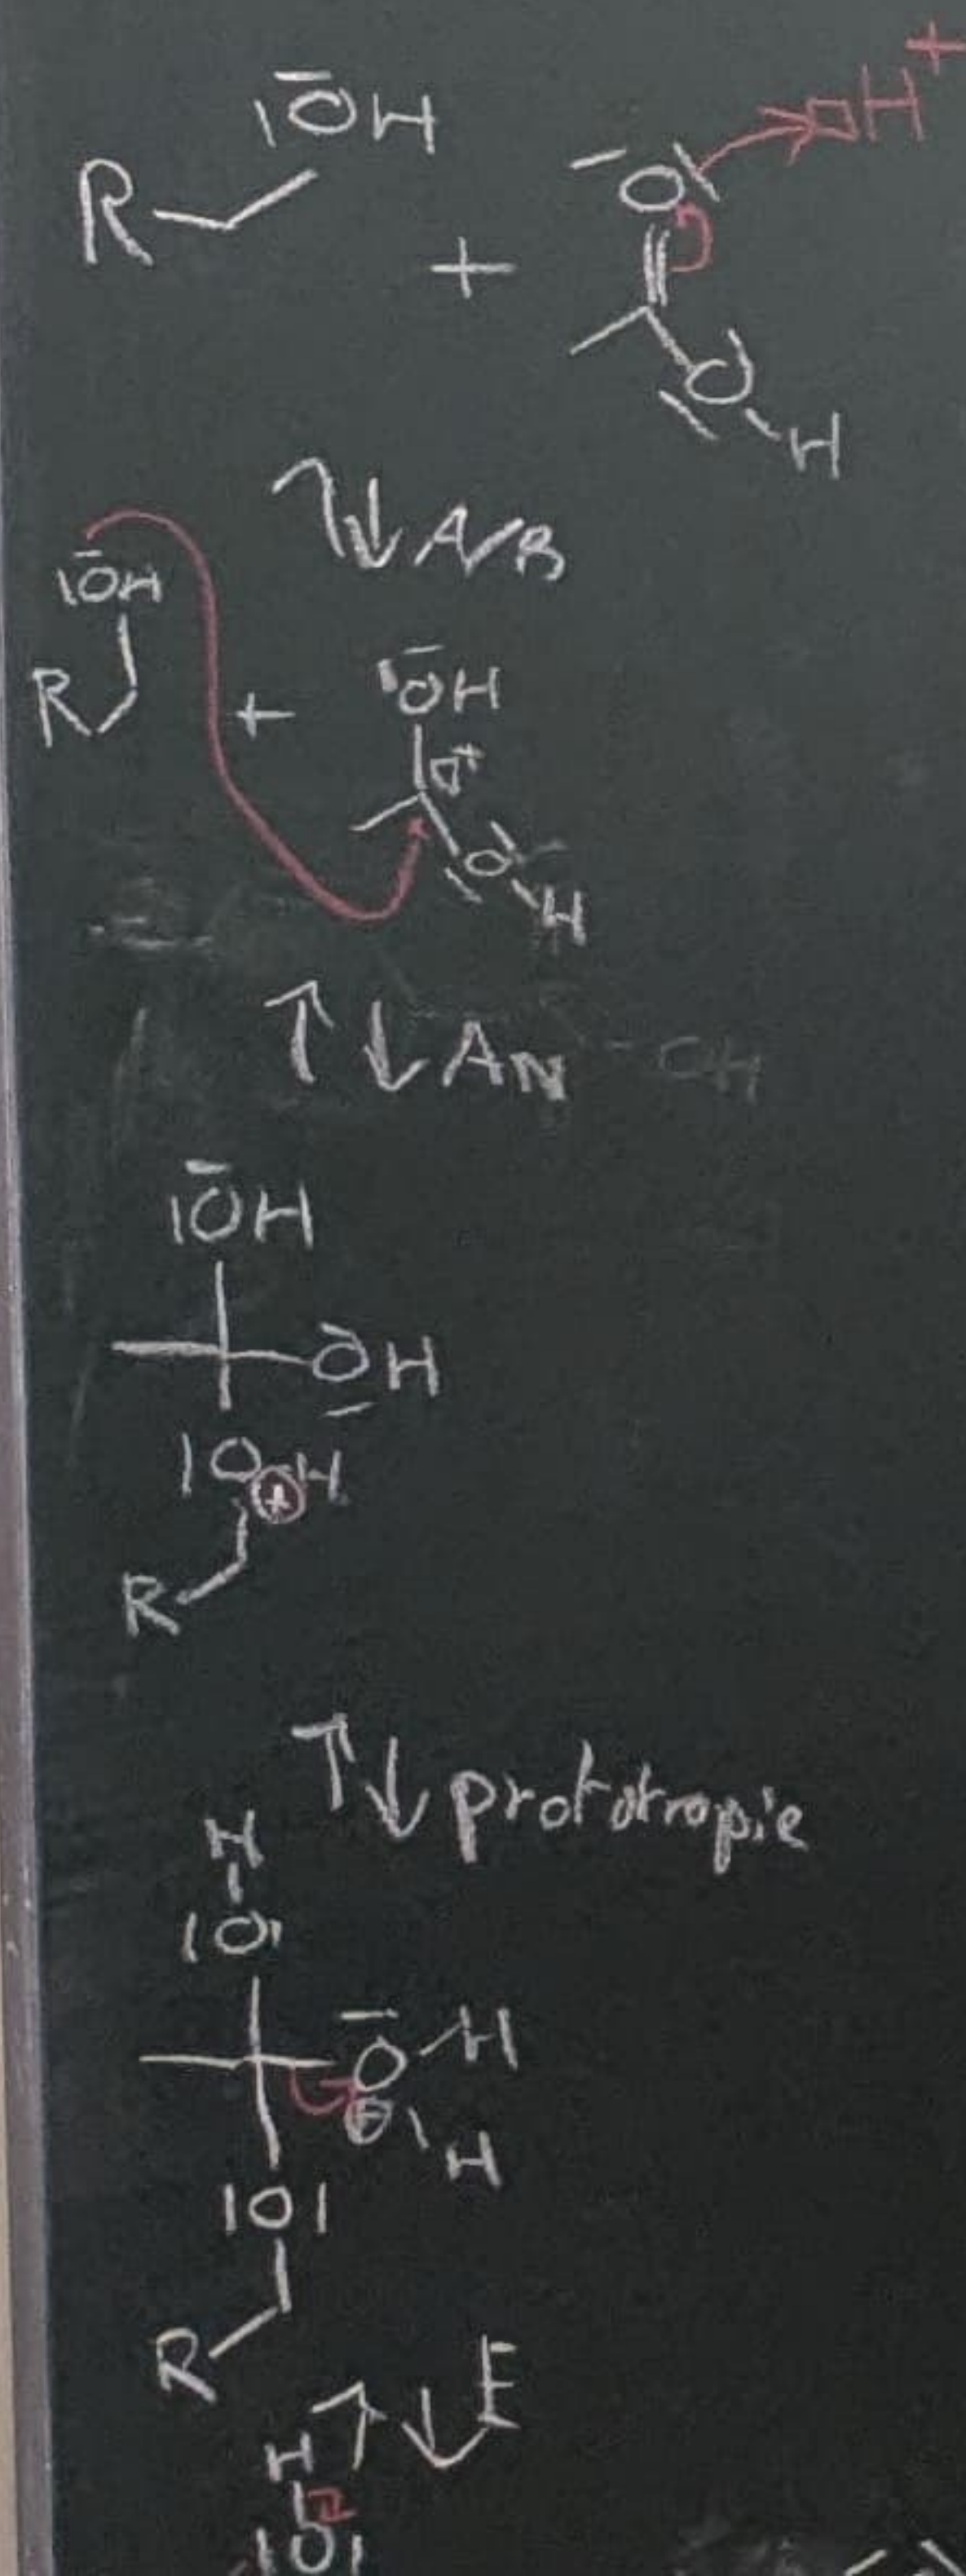 |OH
□H+
R
O
+
O
H
A/B
|OH
R
+
OH
□+
O
H
AN
|OH
OH
|O H
+
R
prototropie
H
|O|
O H
⊕ H
|O|
R
E
H
|O|